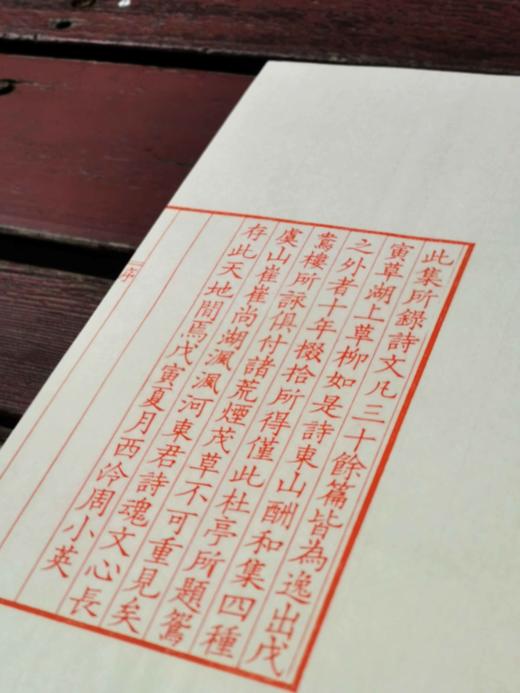 此集所錄詩文凡三十餘篇皆為逸出戊
寅草湖上草柳如是詩東山酬和集四種
之外者十年掇拾所得僅此杜亭所題鴛
鴦樓所詠俱付諸荒煙茂草不可重見矣
虞山崔崔尚湖渢渢河東君詩魂文心長
存此天地間焉戊寅夏月西泠周小英
序